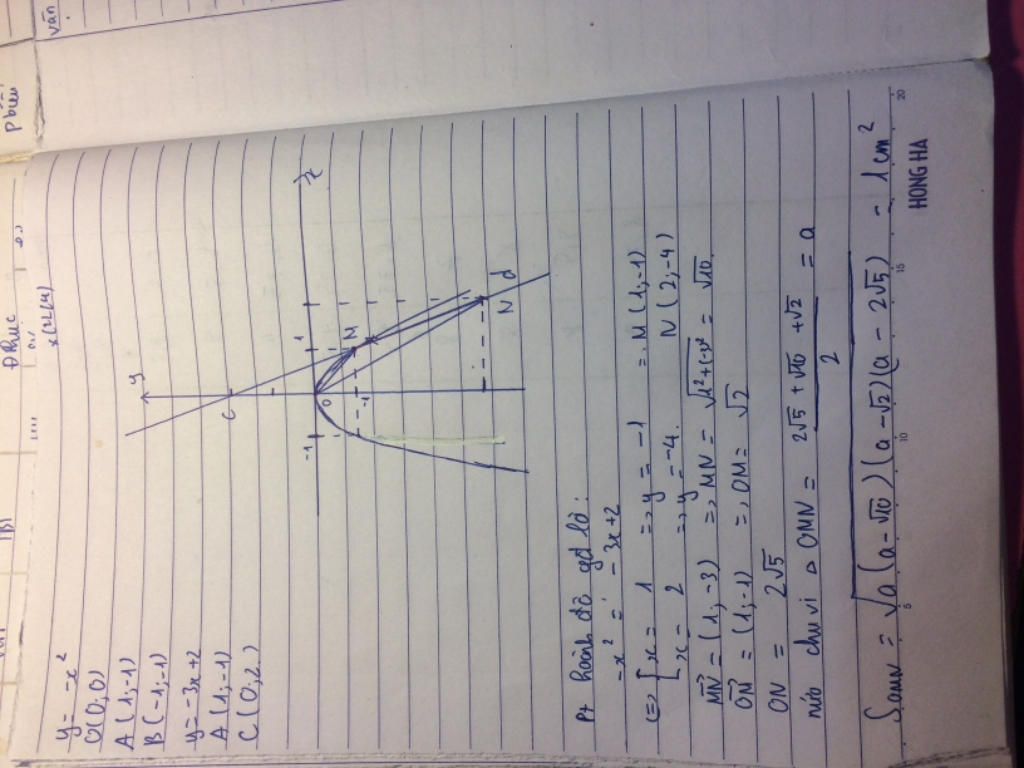 y = -x²
O(0;0)
A(1;-1)
B(-1;-1)
y = -3x+2
A(1;-1)
C(0;2)
y
C
-1
O
1
M
-1
N
d
Pt hoành độ gđ là:
-x² = -3x+2
<=> [x = 1 => y = -1 => M(1;-1)
[x = 2 => y = -4. N(2;-4)
MN = (1;-3) => MN = √1²+(-3)² = √10
OM = (1;-1) => OM = √2
ON = 2√5
nửa chu vi △ OMN = 2√5 + √10 + √2 / 2 = a
S OMN = √a(a-√10)(a-√2)(a-2√5) = 1cm²
5
10
15
20
HONG HA
văn